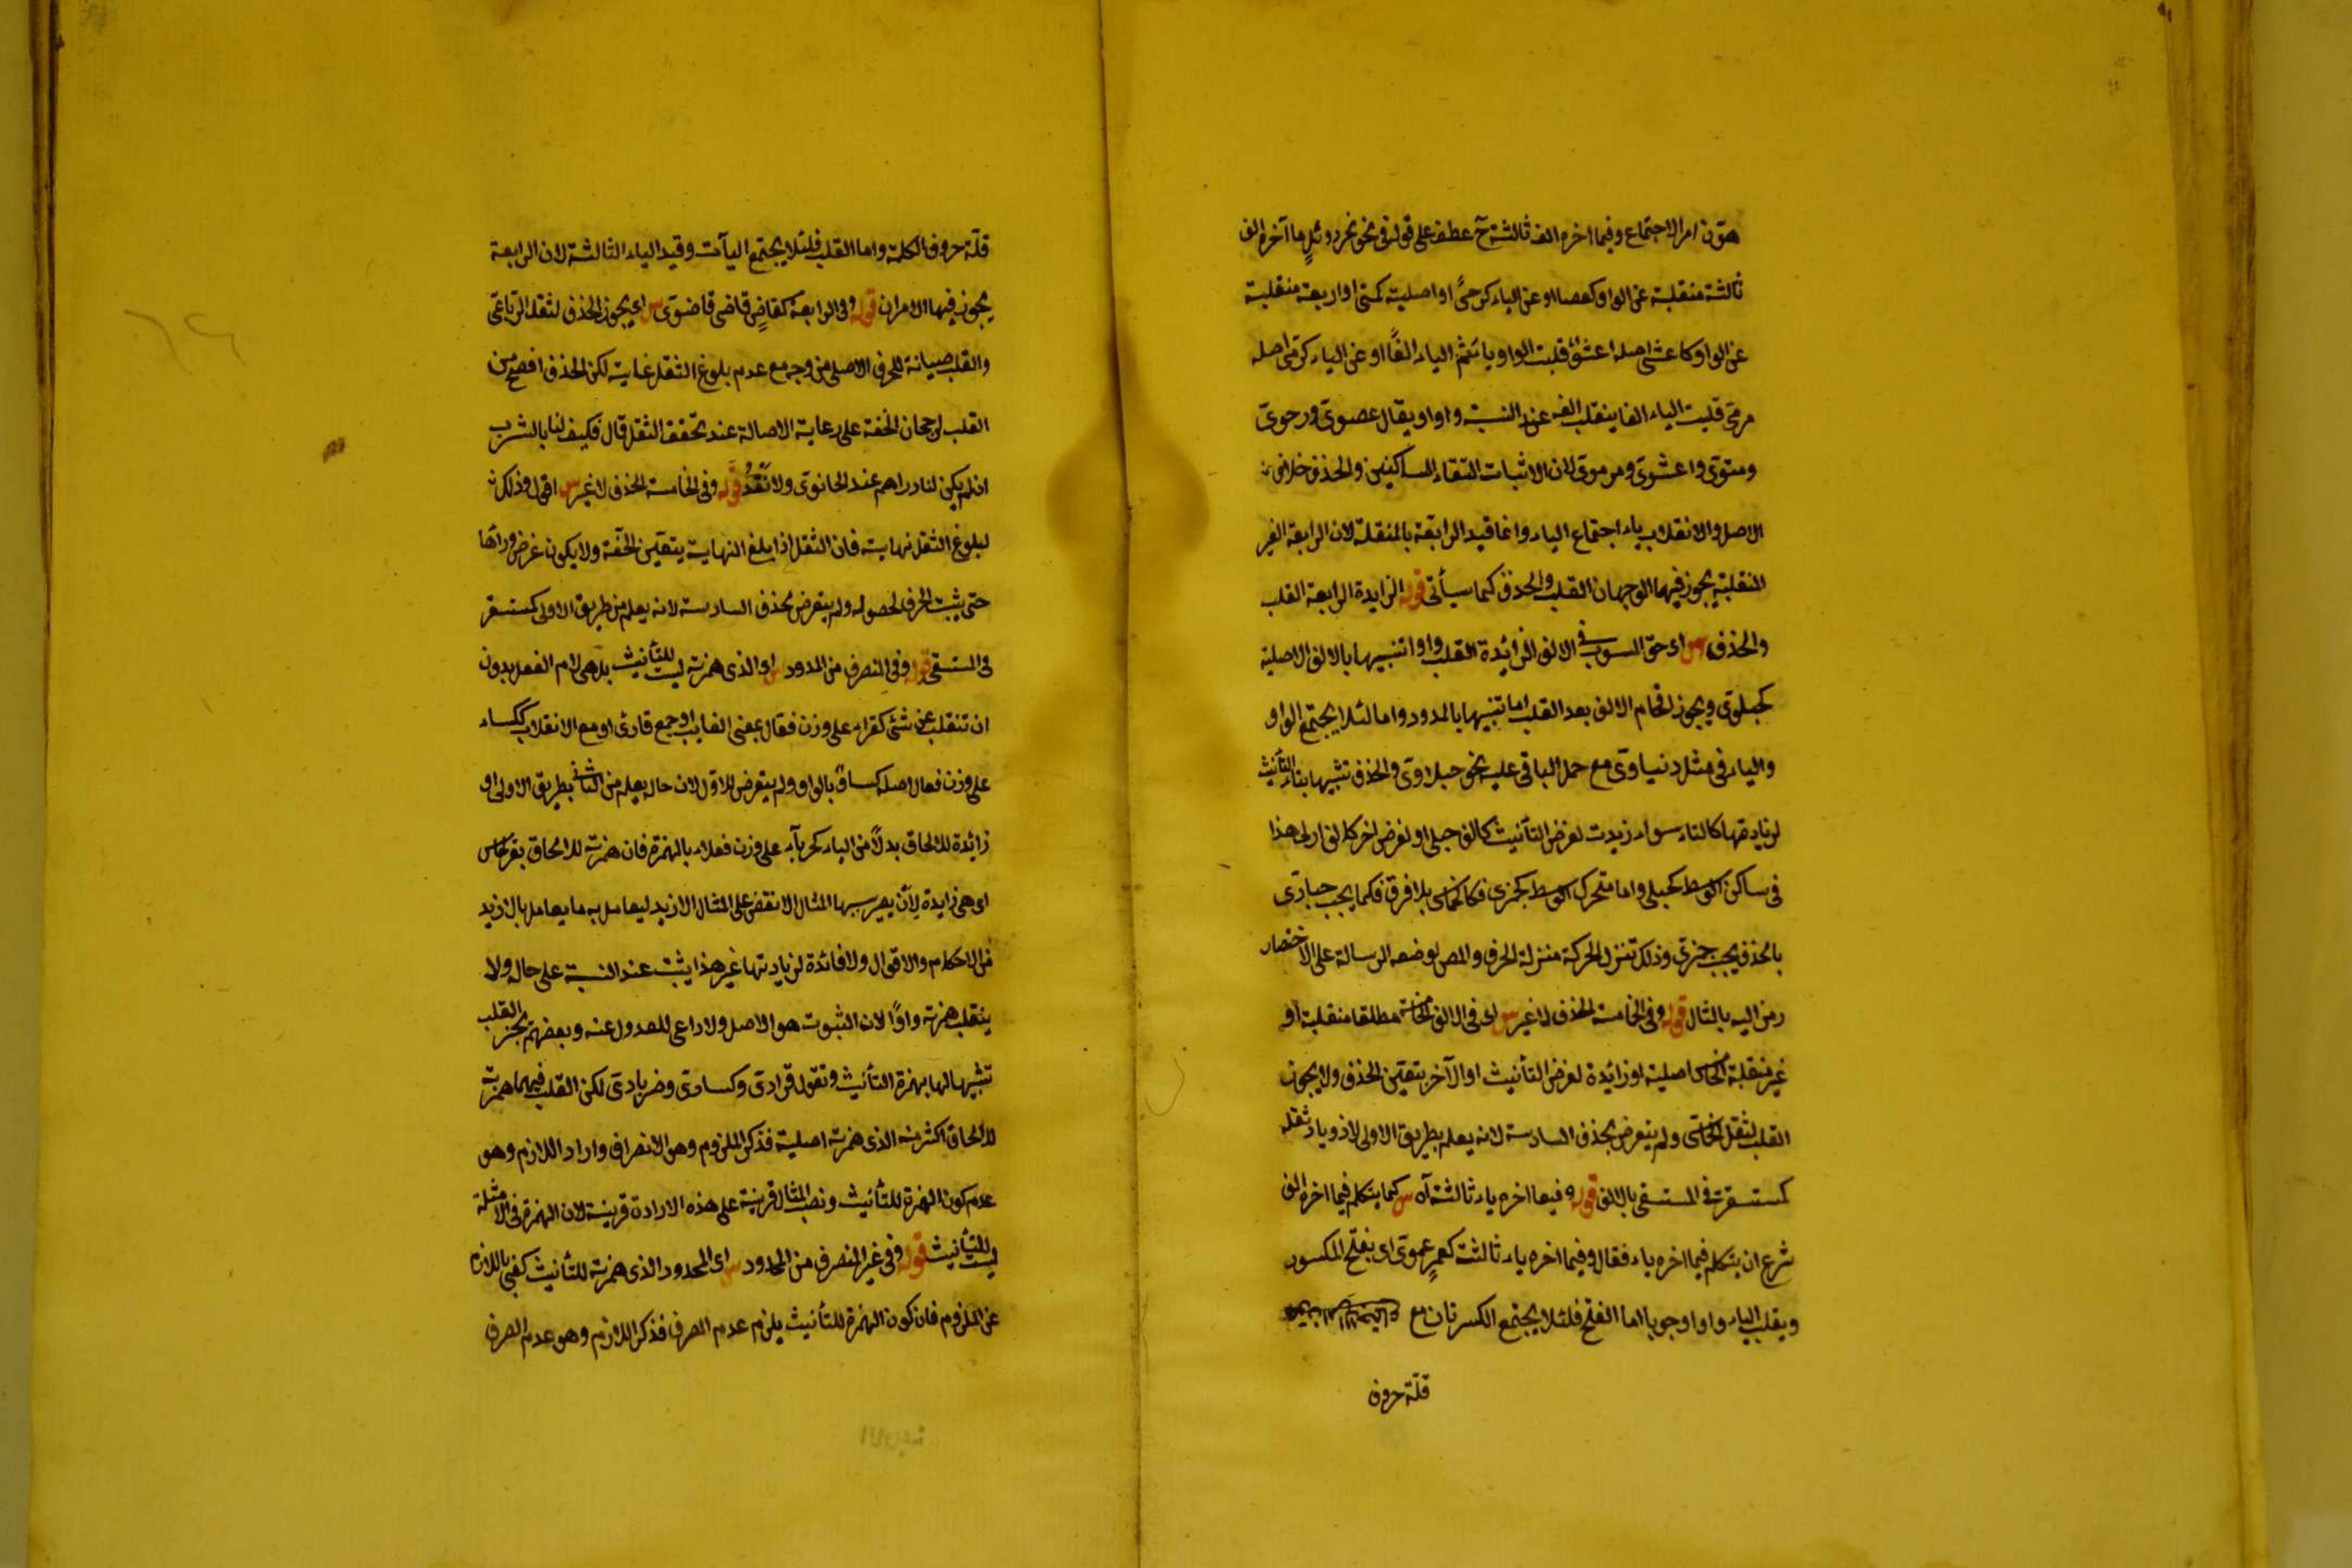 هوّن امر الاجتماع وفيما اخره الف ثالثة آ عطف على قوله فى نحو نمر ودئل ما آخره الف
ثالثة منقلبة عن الواو كعصا او عن الياء كرحىً او اصلية كمتى او اربعة منقلبة
عن الواو كاعشى اصله اعشو قلبت الواو ياء ثم الياء الفًا او عن الياء كرمى اصله
مرمى قلبت الياء الفا ينقلب الفه عند النسبة واوا ويقال عصوى ورحوى
ومتوى واعشوى ومرموى لان الاثبات التقاء الساكنين والحذف خلاف
الاصل والانقلاب ياء اجتماع الياء وانما قيد الرابعة بالمنقلبة لان الرابعة الغير
المنقلبة يجوز فيها الوجهان القلب والحذف كما سيأتى قوله الزايدة الرابعة القلب
والحذف س اى حق المنسوب فى الالف الزائدة القلب واوا تشبيها بالالف الاصلية
كحبلوى ويجوز اقحام الالف بعد القلب اما تشبيها بالممدود واما لئلا يجتمع الواو
والياء فى مثل دنياوى مع حمل الباقى عليه نحو حبلاوى والحذف تشبيها بتاء التأنيث
لزيادتها كالتاء سواء زيدت لغرض التأنيث كالف حبلى او لغرض اخر كالف ارطى هذا
فى ساكن الوسط كحبلى واما متحرك الوسط كجمزى فكالخماسى بلا فرق فكما يجب حبارى
بالحذف يجب جمزى وذلك تنزل الحركة منزلة الحرف والمص لوضعه الرسالة على الاختصار
رمز اليه بالمثال قوله وفى الخامسة الحذف لا غير س اى فى الالف الخامسة مطلقا منقلبة او
غير منقلبة اصلية او زائدة لغرض التأنيث او الآخر يتعين الحذف ولا يجوز
القلب لثقل الخماسى ولم يتعرض بحذف السادسة لانه يعلم بطريق الاولى لازدياد ثقله
كمستسقى فى المستسقى بالالف قوله وفيما اخره ياء ثالثة آه س كما يتكلم فيما اخره الف
شرع ان يتكلم فيما اخره ياء فقال وفيما اخره ياء ثالثة كعمٍ عموى اى بفتح المكسور
ويقلب الياء واوا وجوبا اما الفتح فلئلا يجتمع الكسرتان مع
قلّة حروف
قلّة حروف الكلمة واما القلب فلئلا يجتمع اليآت وقيد الياء الثالثة لان الرابعة
يجوز فيها الامران قوله وفى الرابعة كقاضٍ قاضى قاضوى س اى يجوز الحذف لثقل الرباعى
والقلب صيانة للحرف الاصلى من وجه مع عدم بلوغ الثقل غايته لكن الحذف افصح من
القلب لرجحان الخفة على رعاية الاصالة عند تحقق الثقل قال فكيف لنا بالشرب
ان لم يكن لنا دراهم عند الحانوى ولا نَقْدُ قوله وفى الخامسة الحذف لا غير س اقول وذلك
لبلوغ الثقل نهايته فان الثقل اذا بلغ النهاية يتعين الخفة ولا يكون غرض وراءها
حتى يثبت الحرف لحصوله ولم يتعرض بحذف السادسة لانه يعلم من طريق الاولى كمستسقى
فى المستسقى قوله وفى المنصرف من الممدود س اى الذى همزته ليست للتأنيث بل هى لام الفعل بدون
ان تنقلب عن شئ كقراء على وزن فعال بمعنى العابد او جمع قارئ او مع الانقلاب ككساء
على وزن فعال اصله كساو بالواو ولم يتعرض للاول لان حاله يعلم من الثانى بطريق الاولى او
زائدة للالحاق بدلاً من الياء كحرباء على وزن فعلاء بالهمزة فان همزته للالحاق بقرطاس
اى هى زايدة لأن يصير بسببها المثال الانقص على المثال الازيد ليعامل به ما يعامل بالازيد
من الاحكام والاقوال ولا فائدة لزيادتها غير هذا يثبت عند النسبة على حاله ولا
ينقلب همزته واوًا لان الثبوت هو الاصل ولا داعى للعدول عنه وبعضهم يجز القلب
تشبيها لها بهمزة التأنيث وتقول قراوى وكساوى وحرباوى لكن القلب فيما همزته
للالحاق اكثر منه الذى همزته اصلية فذكر الملزوم وهو الانصراف واراد اللازم وهو
عدم كون الهمزة للتأنيث ونصب المثال قرينة على هذه الارادة قرينة لان الهمزة فى الامثلة
ليست للتأنيث قوله وفى غير المنصرف من الممدود س اى الممدود الذى همزته للتأنيث كنى باللازم
عن الملزوم فان كون الهمزة للتأنيث يلزم عدم الصرف فذكر اللازم وهو عدم الصرف